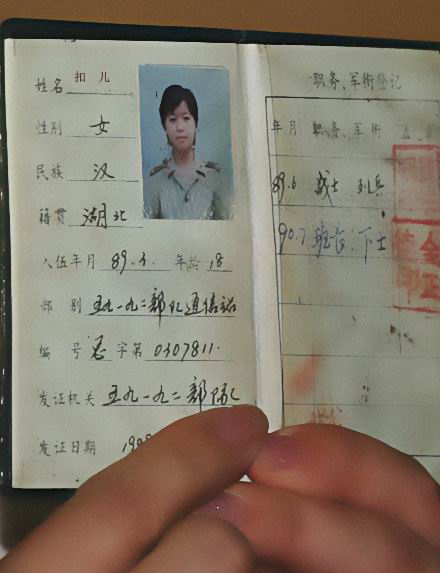 姓名 扣儿
性别 女
民族 汉
籍贯 湖北
入伍年月 89.3. 年龄 18
部别 五九一九二部队通信站
编号 字第 0307811.
发证机关 五九一九二部队
发证日期 199
职务、军衔登记
年月 职务、军衔
89.6 战士 列兵
90.7 班长 下士